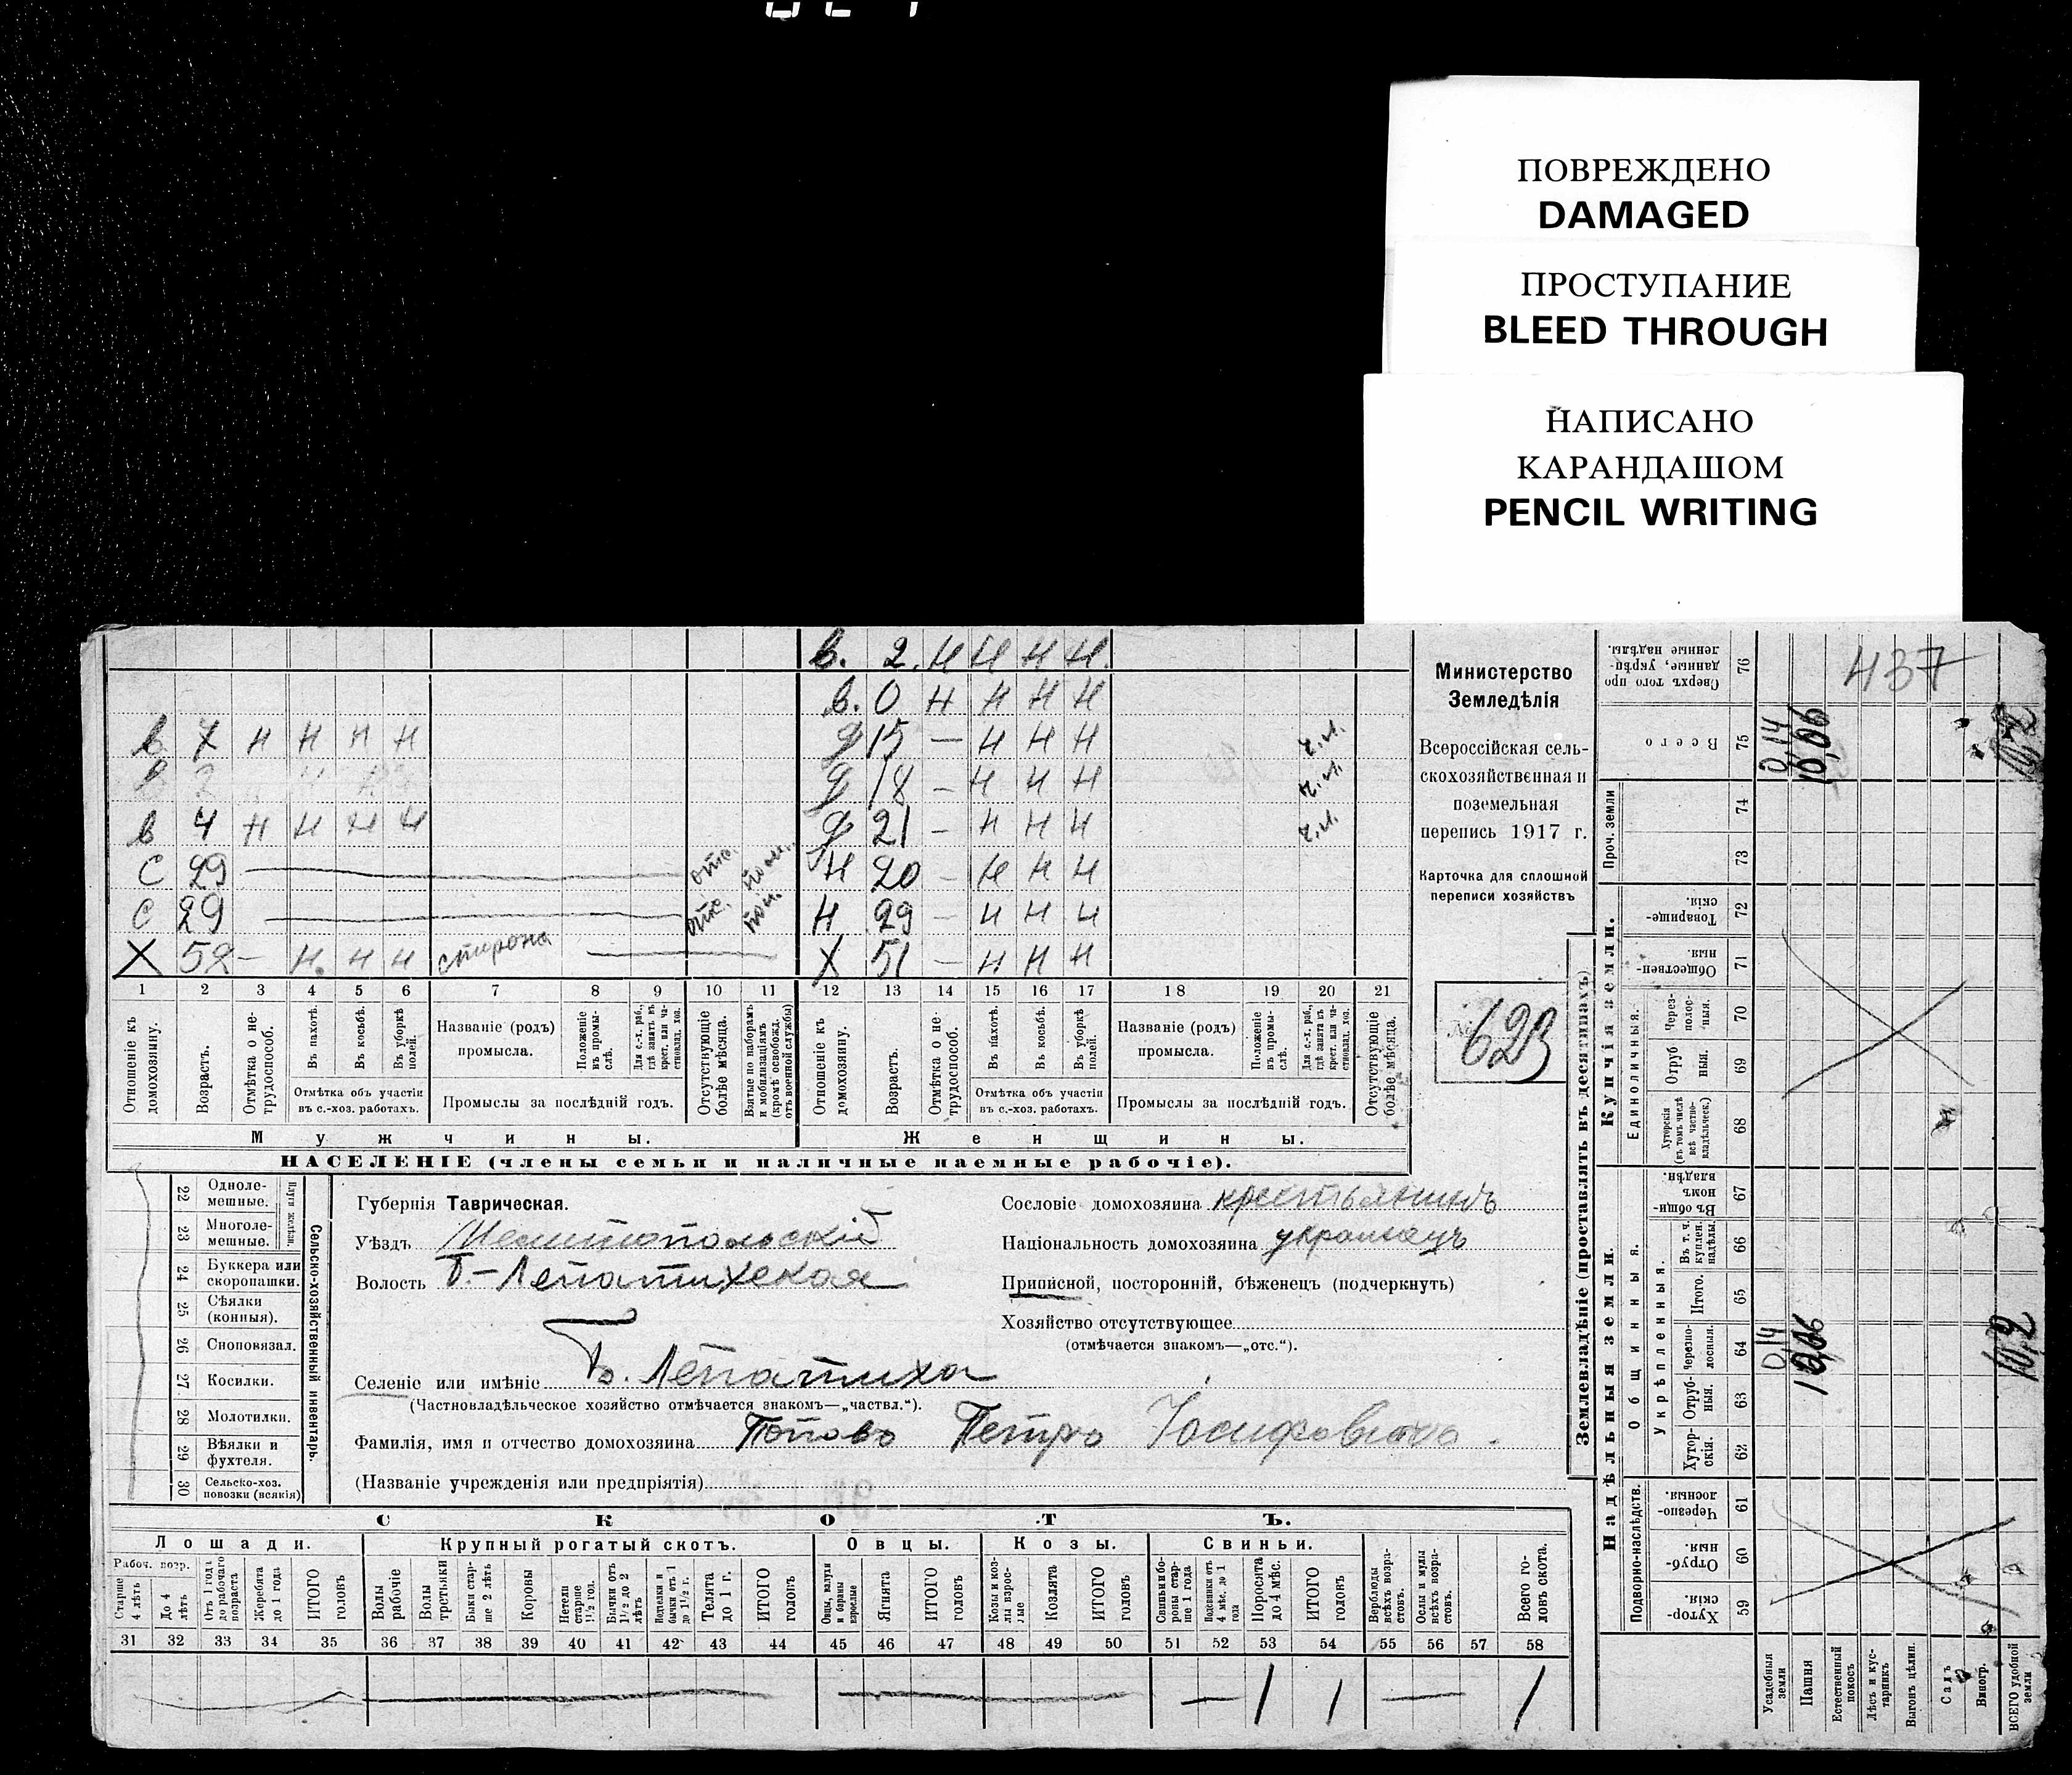 ПОВРЕЖДЕНО
DAMAGED
ПРОСТУПАНИЕ
BLEED THROUGH
НАПИСАНО
КАРАНДАШОМ
PENCIL WRITING
в. 2. Н Н Н Н.
в. 0 Н Н Н Н
в 7 Н Н Н Н
д 15 — Н Н Н
д 18 — Н Н Н
в 4 Н Н Н Н
д 21 - Н Н Н
С 29
Н 20 - Н Н Н
С 29
Н 29 - Н Н Н
Х 52 - Н Н Н
Х 51 - Н Н Н
1 2 3 4 5 6 7 8 9 10 11 12 13 14 15 16 17 18 19 20 21
Отношеніе къ домохозяину.
Возрастъ.
Отмѣтка о нетрудоспособ.
Въ пахотѣ.
Въ косьбѣ.
Въ уборкѣ полей.
Отмѣтка объ участіи въ с.-хоз. работахъ.
Названіе (родъ) промысла.
Положеніе въ промыслѣ.
Для с.-х. раб., гдѣ занятъ въ крест. или частновлад. хоз.
Промыслы за послѣдній годъ.
Отсутствующіе болѣе мѣсяца.
Взятые по наборамъ и мобилизаціямъ (кромѣ освобожд. отъ военной службы)
Отношеніе къ домохозяину.
Возрастъ.
Отмѣтка о нетрудоспособ.
Въ пахотѣ.
Въ косьбѣ.
Въ уборкѣ полей.
Отмѣтка объ участіи въ с.-хоз. работахъ.
Названіе (родъ) промысла.
Положеніе въ промыслѣ.
Для с.-х. раб., гдѣ занятъ въ крест. или частновлад. хоз.
Промыслы за послѣдній годъ.
Отсутствующіе болѣе мѣсяца.
Мужчины.
Женщины.
НАСЕЛЕНІЕ (члены семьи и наличные наемные рабочіе).
Министерство
Земледѣлія
Всероссійская сель-
скохозяйственная и
поземельная
перепись 1917 г.
Карточка для сплошной
переписи хозяйствъ
623
Сельско-хозяйственный инвентарь.
Плуги желѣзн.
22 Одноле-
мешные.
23 Многоле-
мешные.
24 Буккера или
скоропашки.
25 Сѣялки
(конныя).
26 Сноповязал.
27 Косилки.
28 Молотилки.
29 Вѣялки и
фухтеля.
30 Сельско-хоз.
повозки (всякія)
Губернія Таврическая.
Уѣздъ Мелитопольскій
Волость Б.-Лепатихская
Селеніе или имѣніе Б. Лепатиха
(Частновладѣльческое хозяйство отмѣчается знакомъ—„частвл.“).
Фамилія, имя и отчество домохозяина Поповъ Петръ Іосифовичъ.
(Названіе учрежденія или предпріятія)
Сословіе домохозяина крестьянинъ
Національность домохозяина украинецъ
Приписной, посторонній, бѣженецъ (подчеркнуть)
Хозяйство отсутствующее
(отмѣчается знакомъ—„отс.“).
СКОТЪ.
Лошади. Крупный рогатый скотъ. Овцы. Козы. Свиньи.
Рабоч. возр.
Старше 4 лѣтъ
До 4 лѣтъ
Отъ 1 года до рабочаго возраста
Жеребята до 1 года
ИТОГО головъ
Волы рабочіе
Волы третьяки
Быки старше 2 лѣтъ
Коровы
Нетели старше 1½ год.
Бычки отъ 1½ до 2 лѣтъ
Нетелки и бычки отъ 1 до 1½ г.
Телята до 1 г.
ИТОГО головъ
Овцы, валухи и бараны взрослые
Ягнята
ИТОГО головъ
Козы и козлы взрослые
Козлята
ИТОГО головъ
Свиньи боровы старше 1 года
Подсвинки отъ 4 мѣс. до 1 года
Поросята до 4 мѣс.
ИТОГО головъ
Верблюды всѣхъ возрастовъ.
Ослы и мулы всѣхъ возрастовъ.
Всего головъ скота.
31 32 33 34 35 36 37 38 39 40 41 42 43 44 45 46 47 48 49 50 51 52 53 54 55 56 57 58
1 1 1
Землевладѣніе (проставлять въ десятинахъ)
Надѣльныя земли.
Купчія земли.
Проч. земли
Подворно-наслѣдств.
Общинныя.
Укрѣпленныя.
Единоличныя.
Хуторскія 59
Отрубныя 60
Черезполосныя 61
Хуторскія. 62
Отрубныя. 63
Черезполосная. 64
Итого. 65
Въ т. ч. куплен. надѣлы. 66
Въ общинномъ владѣн. 67
Хуторскія (въ томъ числѣ всѣ частновладѣльческ.) 68
Отрубныя. 69
Черезполосныя. 70
Общественныя 71
Товарищескія. 72
73
74
Всего 75
Сверхъ того проданные, укрѣпленные надѣлы. 76
437
0,14
10,06
10,2
0,14
10,2
Усадебныя земли
Пашня
Естественный покосъ
Лѣсъ и кустарникъ
Выгонъ цѣлин.
Садъ
Виногр.
ВСЕГО удобной земли